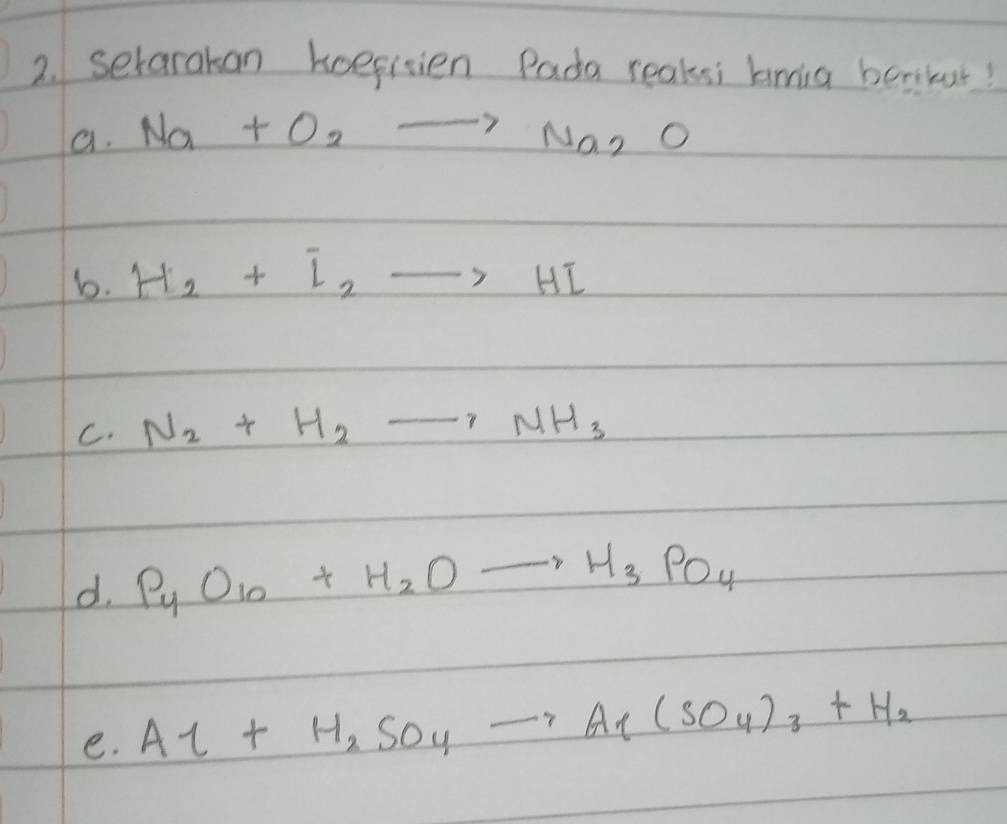 2. Setarakan koefisien Pada reaksi kimia berikut!
a. Na + O₂ → Na₂ O
b. H₂ + I₂ → HI
c. N₂ + H₂ → NH₃
d. P₄ O₁₀ + H₂O → H₃ PO₄
e. Al + H₂ SO₄ → Al (SO₄)₃ + H₂